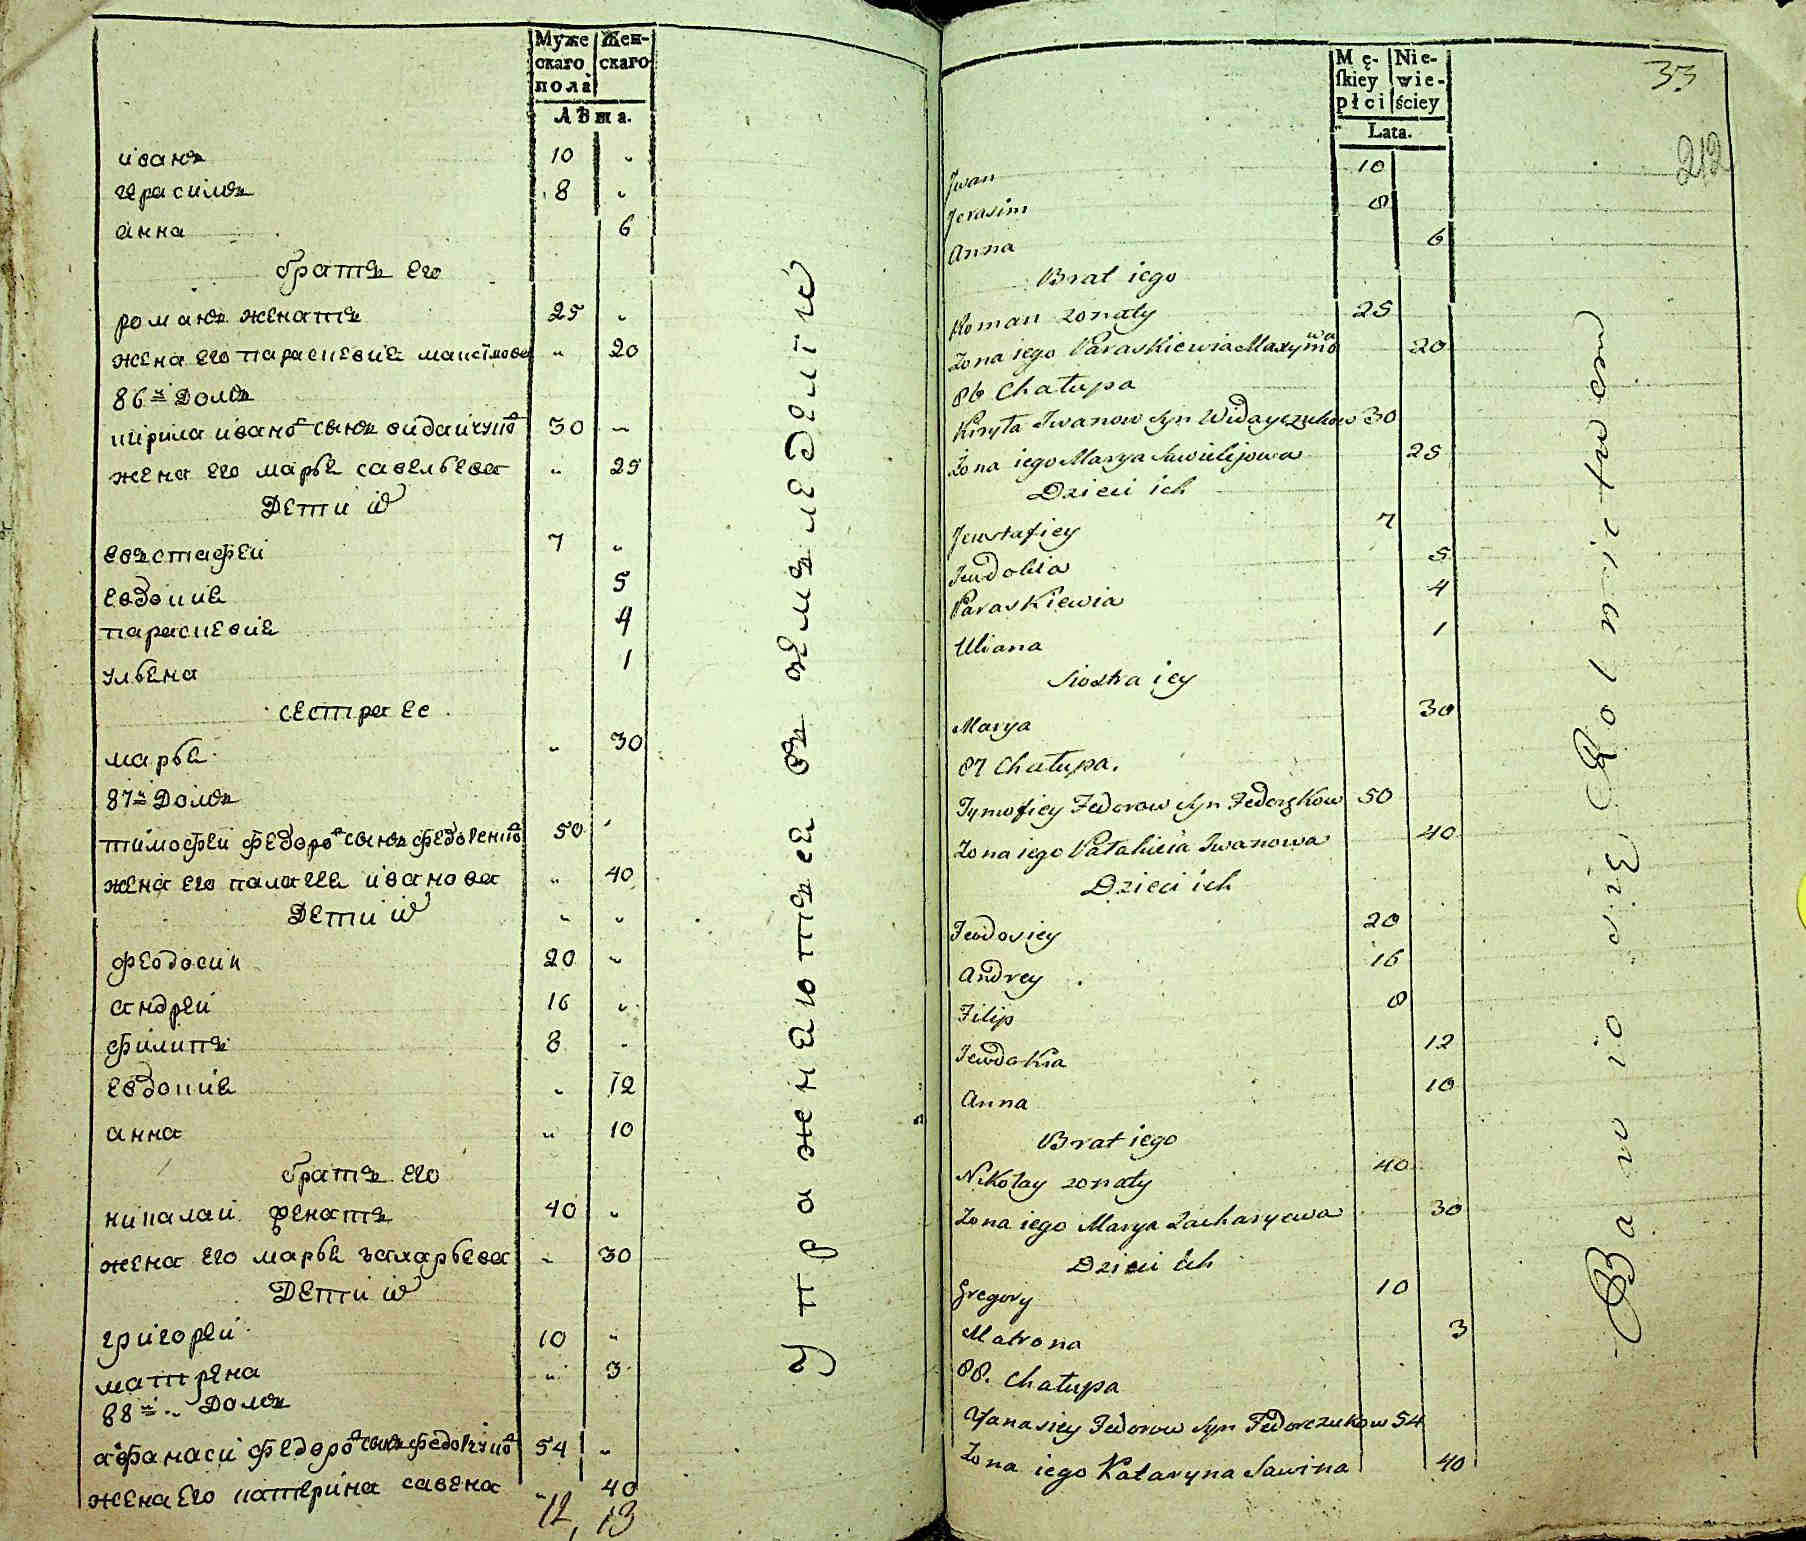 Муже скаго пола
Жен- скаго
Лѣта.
иванъ 10 „
герасимъ 8 „
анна 6
братъ его
романъ женатъ 25 „
жена его параскевия максимова „ 20
86й домъ
кирила ивановъ сынъ видайчуковъ 30 „
жена его марья савельева „ 25
дети их
евстафей 7 „
евдокия 5
параскевия 4
ульена 1
сестра ее
марья „ 30
87й домъ
тимофей федоровъ сынъ 50
жена его палагея иванова „ 40
дети их „ „
феодосии 20 „
андрей 16 „
филипъ 8 „
евдокия „ 12
анна „ 10
братъ его
никалай женатъ 40 „
жена его марья захарьева „ 30
дети их
григорей 10 „
матрена „ 3
88й домъ
афанаси федоровъ сынъ федорчуковъ 54 „
жена его катерина савена „ 40
12, 13
упражнеютъся въ земледелии
33
212
Mę- skiey płci
Nie- wie- ściey
Lata.
Jwan 10
Jerasim 8
Anna 6
Brat iego
Roman zonaty 25
Zona iego Paraskiewia Maxymowa 20
86 Chałupa
Kiryła Iwanow syn Widayczukow 30
Żona iego Marya Sawielijowa 25
Dzieci ich
Jewstafiey 7
Jewdokia 5
Paraskiewia 4
Uliana 1
Siostra iey
Marya 30
87 Chałupa.
Tymofiey Fedorow syn 50
Zona iego Pałahieia Iwanowa 40
Dzieci ich
Feodosiey 20
Andrey 16
Filip 8
Jewdokia 12
Anna 10
Brat iego
Nikołay zonaty 40
Zona iego Marya Zacharyewa 30
Dzieci ich
Gregory 10
Matrona 3
88. Chałupa
Afanasiey Fedorow syn Fedorczukow 54
Zona iego Katarzyna Sawina 40
Bawią się Rolnictwem